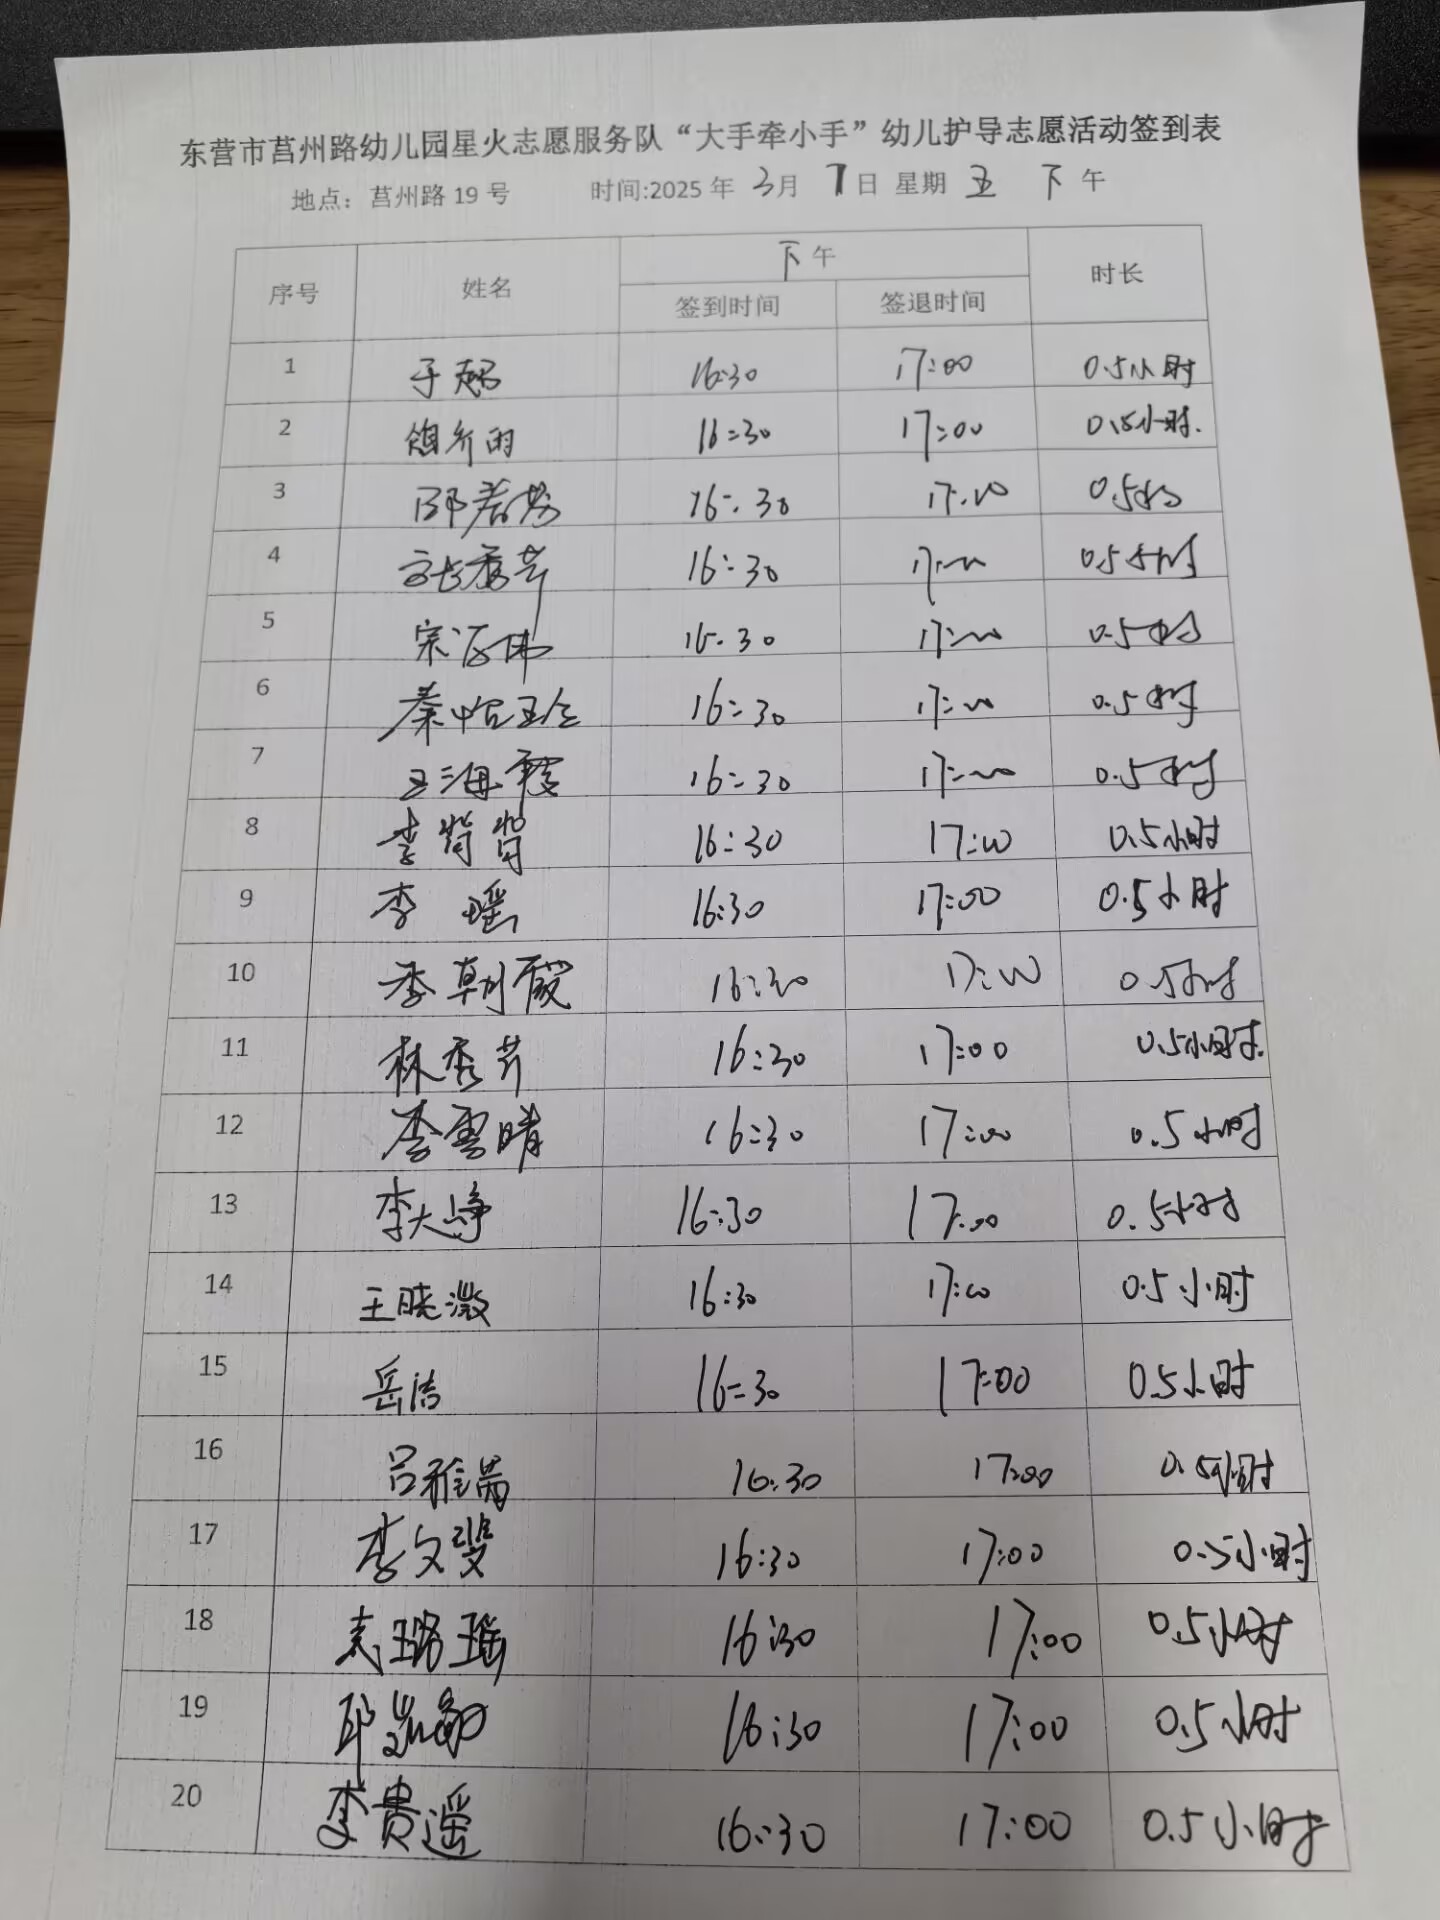 东营市莒州路幼儿园星火志愿服务队“大手牵小手”幼儿护导志愿活动签到表
地点：莒州路 19 号 时间:2025 年 3月 7日 星期 五 下 午
序号 姓名 下午 时长
签到时间 签退时间
1 于 16:30 17:00 0.5小时
2 16:30 17:00 0.5小时.
3 邵 16:30 17:00 0.5小时
4 16:30 17:00 0.5小时
5 宗 16:30 17:00 0.5小时
6 秦 16:30 17:00 0.5小时
7 王海霞 16:30 17:00 0.5小时
8 李 16:30 17:00 0.5小时
9 李 瑶 16:30 17:00 0.5小时
10 季朝霞 16:30 17:00 0.5小时
11 林秀芹 16:30 17:00 0.5小时.
12 李雪晴 16:30 17:00 0.5小时
13 李大峥 16:30 17:00 0.5小时
14 王晓微 16:30 17:00 0.5小时
15 岳洁 16:30 17:00 0.5小时
16 吕雅 16:30 17:00 0.5小时
17 李文斐 16:30 17:00 0.5小时
18 袁璐瑶 16:30 17:00 0.5小时
19 邱 16:30 17:00 0.5小时
20 李贵遥 16:30 17:00 0.5小时